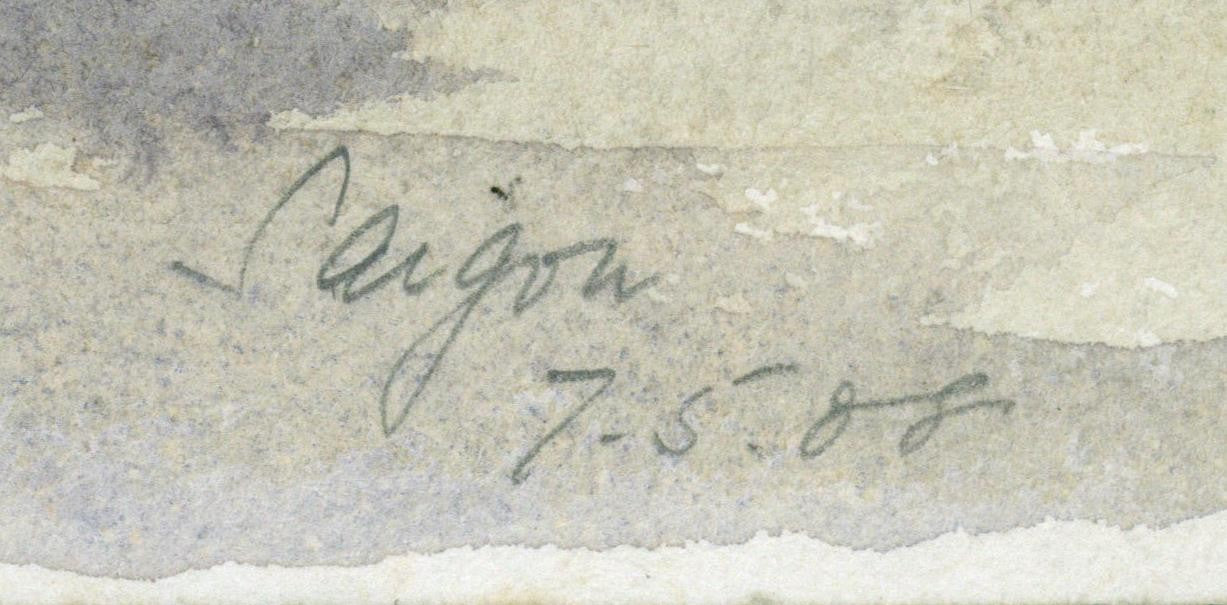 Saigon
7-5-08